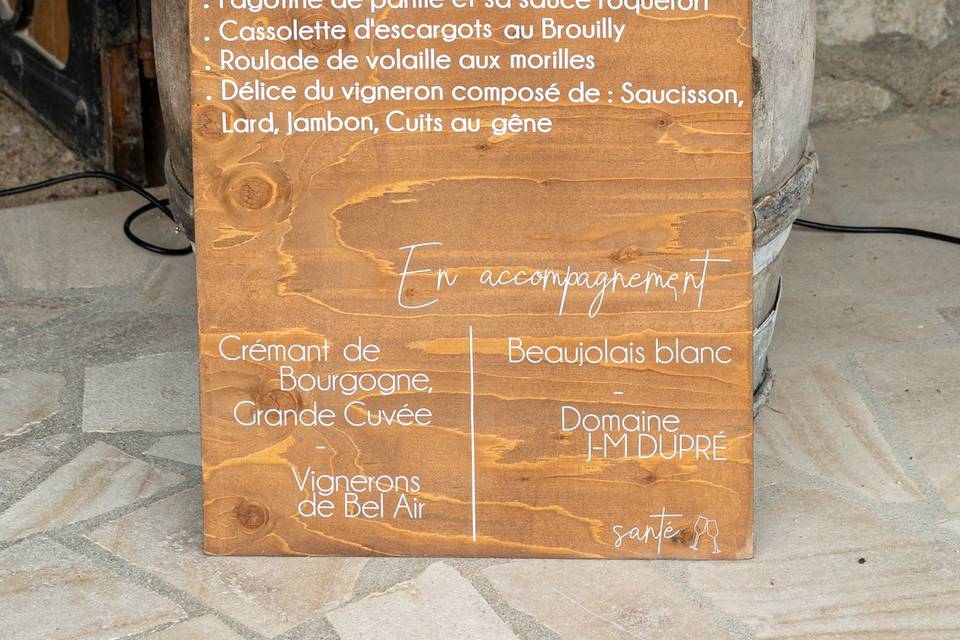 . Cassolette d'escargots au Brouilly
. Roulade de volaille aux morilles
. Délice du vigneron composé de : Saucisson,
Lard, Jambon, Cuits au gêne
En accompagnement
Crémant de
Bourgogne,
Grande Cuvée
-
Vignerons
de Bel Air
Beaujolais blanc
-
Domaine
J-M DUPRÉ
santé